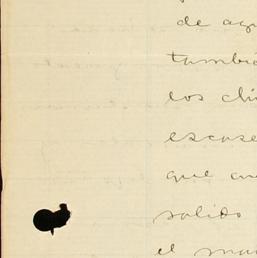 de aqu
tambié
los chi
escase
que au
salido
el ma